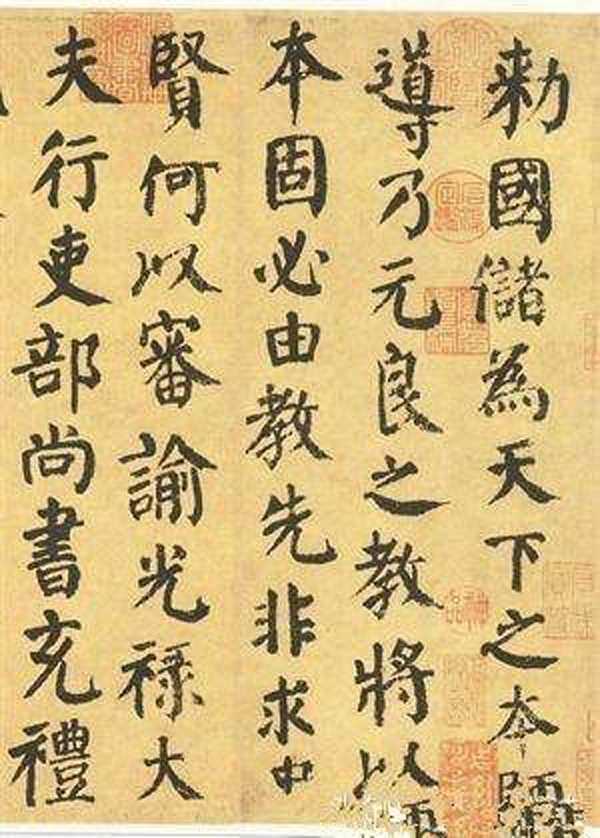 勅國儲為天下之本
導乃元良之教將以
本固必由教先非求中
賢何以審諭光祿大
夫行吏部尚書充禮